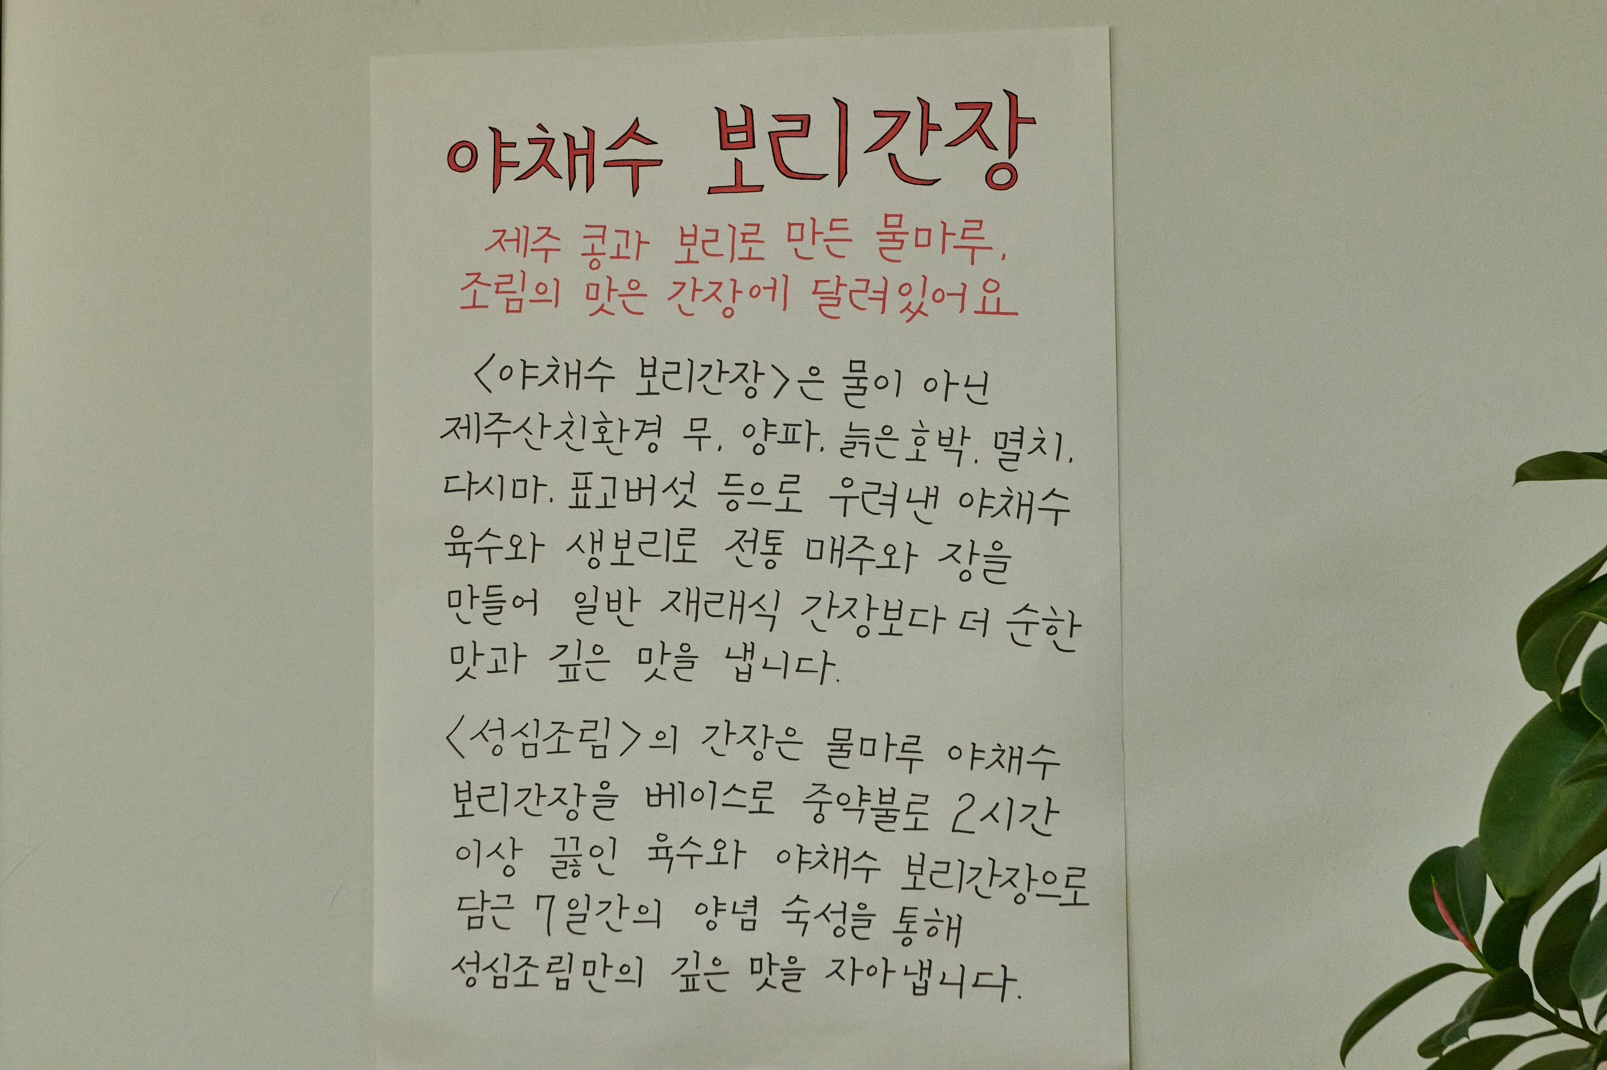 야채수 보리간장
제주 콩과 보리로 만든 물마루,
조림의 맛은 간장에 달려있어요
<야채수 보리간장>은 물이 아닌
제주산친환경 무, 양파, 늙은호박, 멸치,
다시마, 표고버섯 등으로 우려낸 야채수
육수와 생보리로 전통 매주와 장을
만들어 일반 재래식 간장보다 더 순한
맛과 깊은 맛을 냅니다.
<성심조림>의 간장은 물마루 야채수
보리간장을 베이스로 중약불로 2시간
이상 끓인 육수와 야채수 보리간장으로
담근 7일간의 양념 숙성을 통해
성심조림만의 깊은 맛을 자아냅니다.